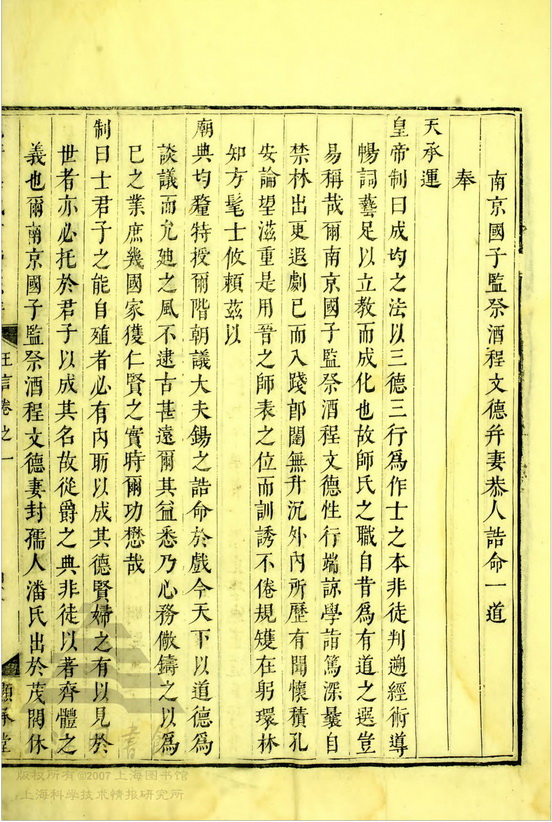 南京國子監祭酒程文德并妻恭人誥命一道
奉
天承運
皇帝制曰成均之法以三德三行爲作士之本非徒判遡經術導
暢詞藝足以立教而成化也故師氏之職自昔爲有道之選豈
易稱哉爾南京國子監祭酒程文德性行端諒學詣篤深曩自
禁林出更遐劇已而入踐郎闈無升沉外內所歷有聞懷積孔
安論望滋重是用晉之師表之位而訓誘不倦規矱在躬環林
知方髦士攸賴茲以
廟典均釐特授爾階朝議大夫錫之誥命於戲今天下以道德爲
談議而允廸之風不逮古甚遠爾其益悉乃心務儆鑄之以爲
已之業庶幾國家獲仁賢之實時爾功懋哉
制曰士君子之能自殖者必有內耵以成其德賢婦之有以見於
世者亦必托於君子以成其名故從爵之典非徒以著齊體之
義也爾南京國子監祭酒程文德妻封孺人潘氏出於茂閥休
言卷之一
版权所有©2007上海图书馆
上海科学技术情报研究所